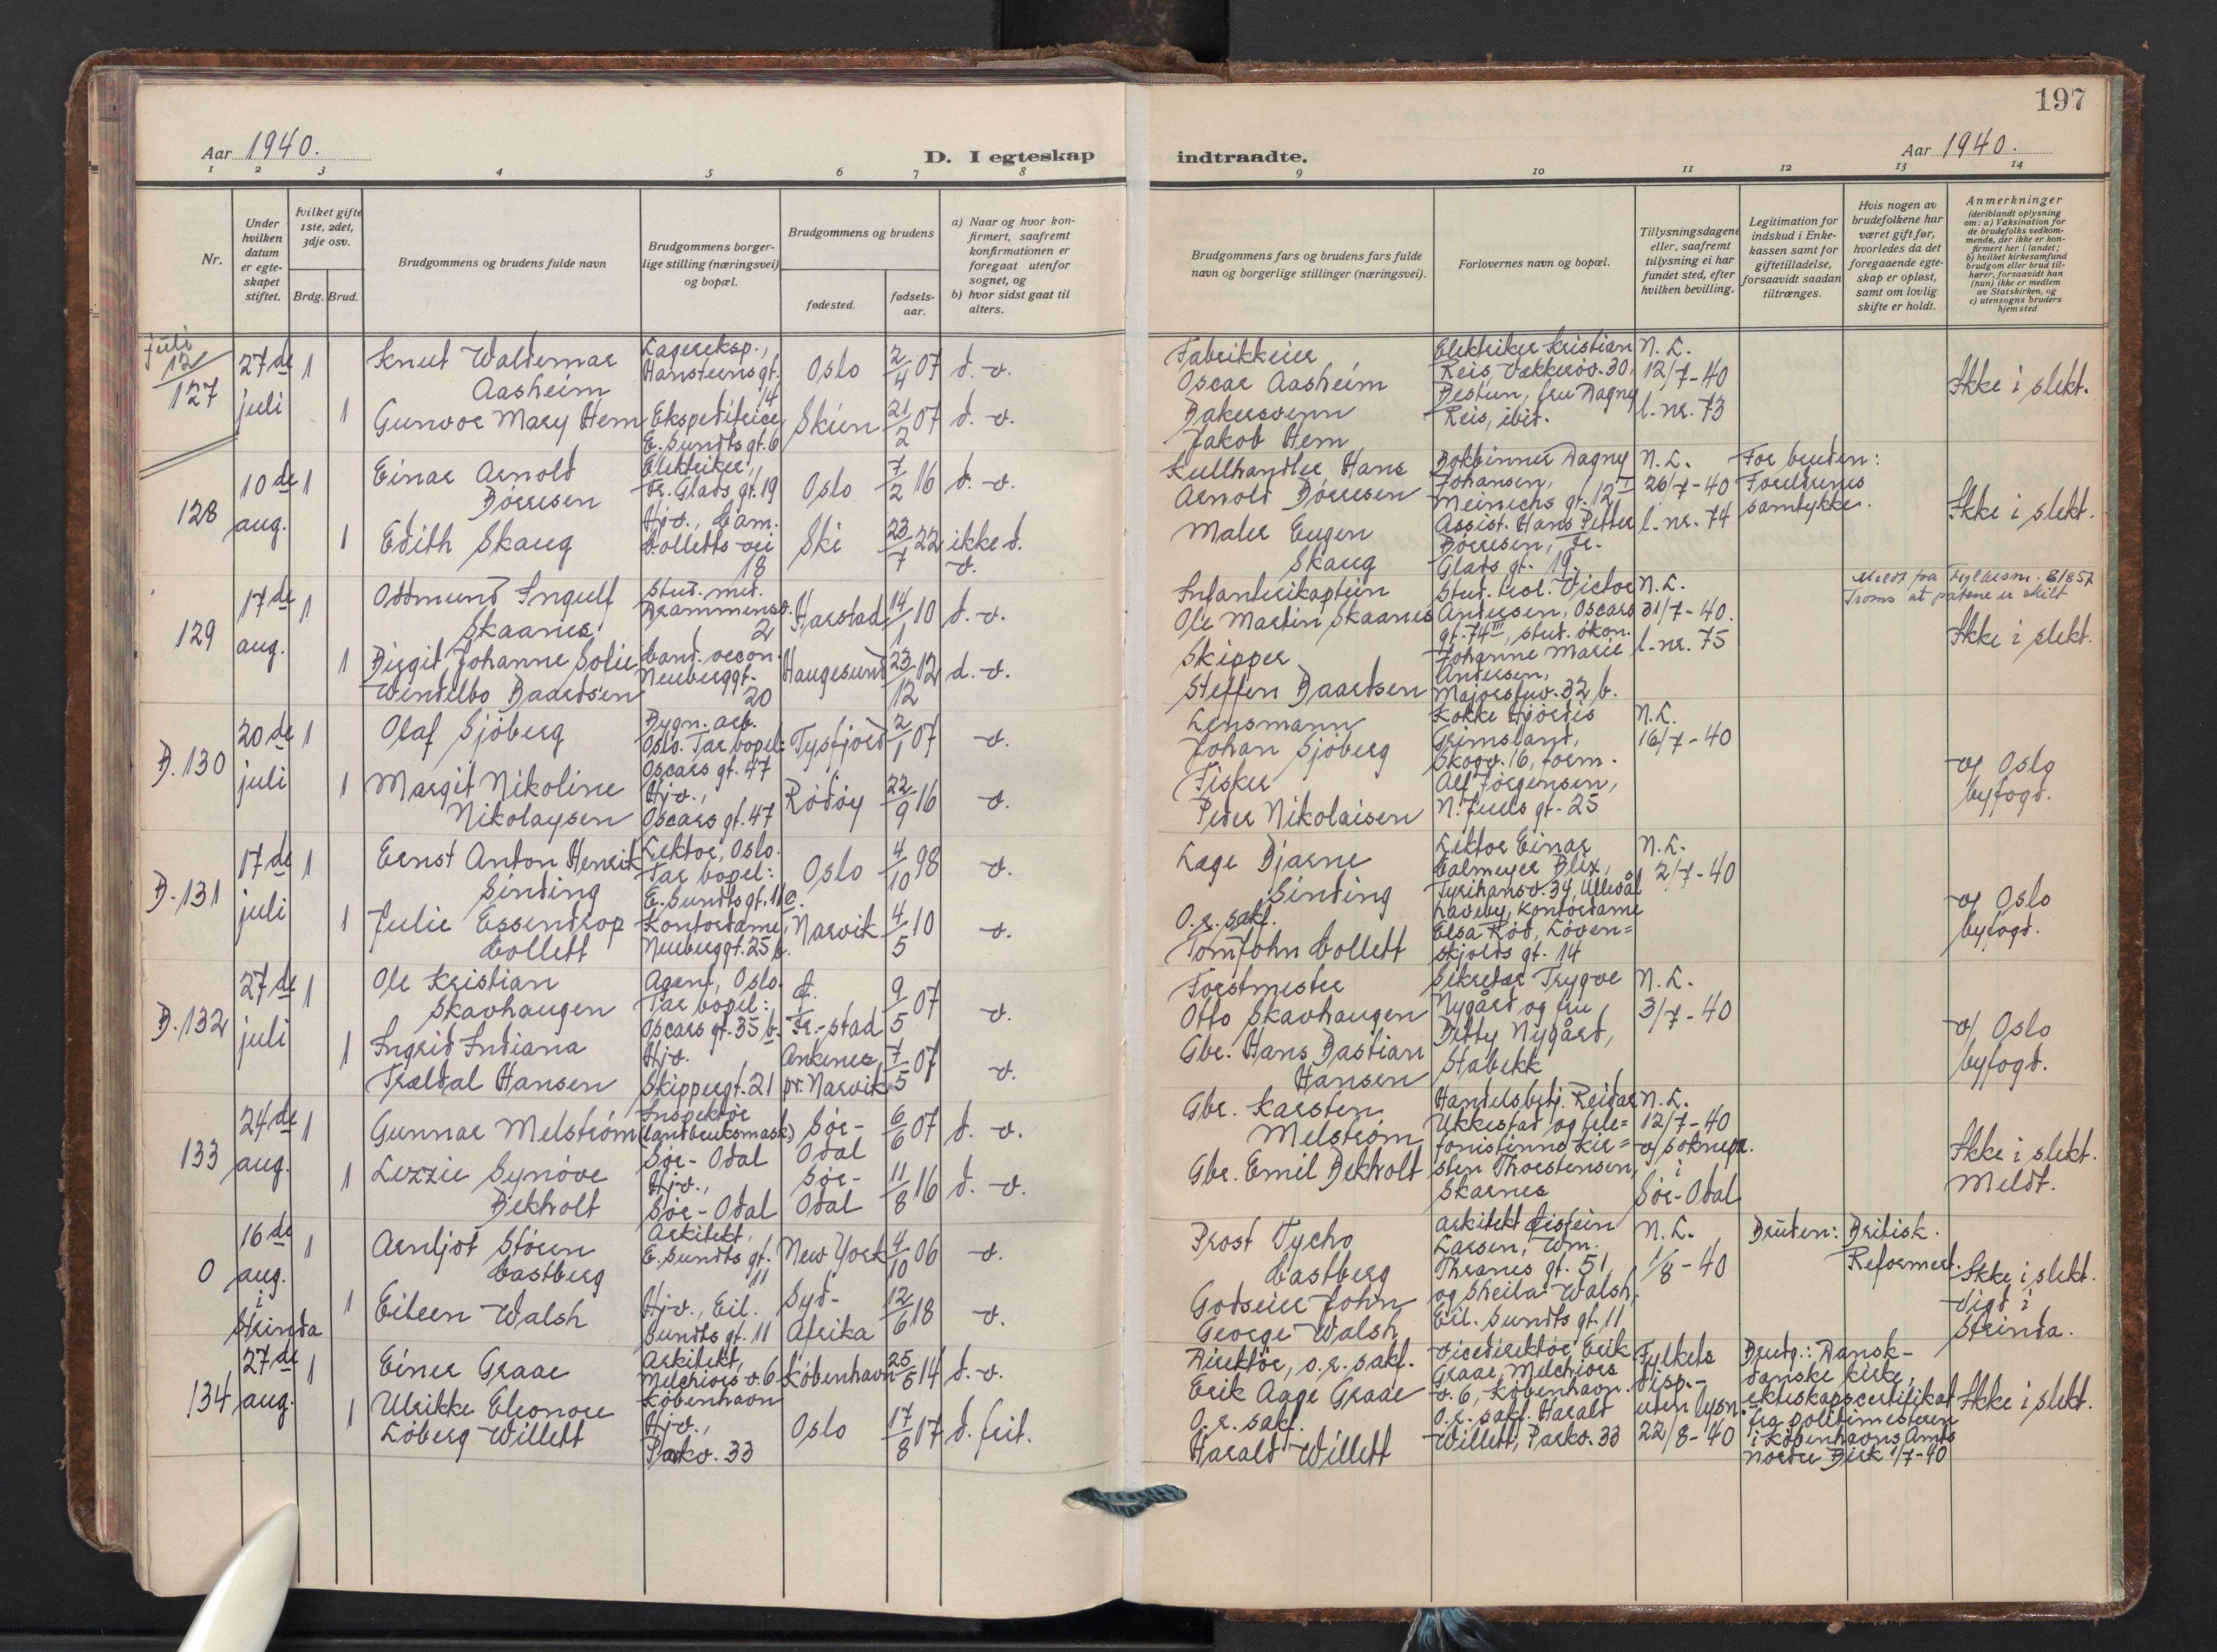 197
Aar 1940.
D. I egteskap
indtraadte.
Aar 1940.
1 2 3 4 5 6 7 8
9 10 11 12 13 14
Nr.
Under hvilken datum er egte-skapet stiftet.
hvilket gifte 1ste, 2det, 3dje osv.
Brdg. Brud.
Brudgommens og brudens fulde navn
Brudgommens borger-lige stilling (næringsvei) og bopæl.
Brudgommens og brudens
fødested.
fødsels-aar.
a) Naar og hvor kon-firmert, saafremt konfirmationen er foregaat utenfor sognet, og
b) hvor sidst gaat til alters.
Brudgommens fars og brudens fars fulde navn og borgerlige stillinger (næringsvei).
Forlovernes navn og bopæl.
Tillysningsdagene eller, saafremt tillysning ei har fundet sted, efter hvilken bevilling.
Legitimation for indskud i Enke-kassen samt for giftetilladelse, forsaavidt saadan tiltrænges.
Hvis nogen av brudefolkene har været gift før, hvorledes da det foregaaende egte-skap er opløst, samt om lovlig skifte er holdt.
Anmerkninger (deriblandt oplysning om: a) Vaksination for de brudefolks vedkom-mende, der ikke er kon-firmert her i landet; b) hvilket kirkesamfund brudgom eller brud til-hører, forsaavidt han (hun) ikke er medlem av Statskirken, og c) utensogns bruders hjemsted
juli 12/127
27de juli
1 Knut Waldemar Aasheim
Lagereksp., Hansteensgt. 14
Oslo 2/4 07 d. v.
1 Gunvor Mary Hem
Ekspeditrice, E. Sundts gt. 6
Skien 21/2 07 d. v.
Fabrikkeier Oscar Aasheim
Bakersvenn Jakob Hem
Elektriker Kristian Reis, Vækkerøv. 30, Bestun, fru Dagny Reis, ibid.
N.L. 12/7-40 l. nr. 73
Ikke i slekt.
128
10de aug.
1 Einar Arnold Börresen
Elektriker, Fr. Glads gt. 19
Oslo 7/2 16 d. v.
1 Edith Skaug
Hjv., Cam. Colletts vei 18
Ski 23/7 22 ikke d. v.
Kullhandler Hans Arnold Börresen
Maler Eugen Skaug
Bokbinner Dagny Johansen, Meinichs gt. 12 II
Assist. Hans Petter Börresen, Fr. Glads gt. 19.
N.L. 26/7-40 l. nr. 74
For bruden: Foreldrenes samtykke.
Ikke i slekt.
129
17de aug.
1 Oddmund Ingulf Skaanes
Stud. med. Drammensv. 2
Harstad 14/1 10 d. v.
1 Birgit Johanne Sofie Wendelbo Baardsen
Cand. oecon. Neuberggt. 20
Haugesund 23/12 12 d. v.
Infanterikaptein Ole Martin Skaanes
Skipper Steffen Baardsen
Stud. real. Victor Andersen, Oscars gt. 74 III, stud. økon. Johanne Marie Andersen, Majorstuv. 32 b.
N.L. 31/7-40. l. nr. 75
Meldt fra Fylkesm. Troms at partene er skilt
Ikke i slekt.
B. 130
20de juli
1 Olaf Sjöberg
Bygn. arb. Oslo. Tar bopel: Oscars gt. 47
Tysfjord 2/1 07 v.
1 Margit Nikoline Nikolaysen
Hjv., Oscars gt. 47
Rödöy 22/9 16 v.
Lensmann Johan Sjöberg
Fisker Peder Nikolaisen
Kokke Hjördis Grimsland, Skogv. 16, form. Alf Jörgensen, N. Juels gt. 25
N.L. 16/7-40
v/ Oslo byfogd.
B. 131
17de juli
1 Ernst Anton Henrik Sinding
Lektor, Oslo. Tar bopel: E. Sundts gt. 11 c.
Oslo 4/10 98 v.
1 Julie Essendrop Collett
Kontordame, Neuberggt. 25 b.
Narvik 4/5 10 v.
Lege Bjarne Sinding
O.r. sakf. Tom John Collett
Lektor Einar Calmeyer Blix, Tyrihansv. 34, Ullevål Haveby, kontordame Elsa Röd, Löven=skjolds gt. 14
N.L. 2/7-40
v/ Oslo byfogd.
B. 132
27de juli
1 Ole Kristian Skavhaugen
Agent, Oslo. Tar bopel: Oscars gt. 35 b.
Fr.-stad 9/5 07 v.
1 Ingrid Indiana Trældal Hansen
Hjv. Skippergt. 21
Ankenes, pr. Narvik 7/5 07 v.
Forstmester Otto Skavhaugen
Gbr. Hans Bastian Hansen
Sekretær Trygve Nygård og fru Betty Nygård, Stabekk
N.L. 3/7-40
v/ Oslo byfogd.
133
24de aug.
1 Gunnar Melström
Inspektör (landbruksmask.) Sör-Odal
Sör-Odal 6/6 07 d. v.
1 Lizzie Synöve Bekholt
Hjv., Sör-Odal
Sör-Odal 11/8 16 d. v.
Gbr. Karsten Melström
Gbr. Emil Bekholt
Handelsbetj. Reidar Ukkestad og tele=fonistinne Kir=sten Thorstensen, Skarnes
N.L. 12/7-40 v/ soknepr. i Sör-Odal
Ikke i slekt. Meldt.
0
16de aug. i Strinda
1 Arnljot Stören Castberg
Arkitekt, E. Sundts gt. 11
New York 4/10 06 v.
1 Eileen Walsh
Hjv., Eil. Sundts gt. 11
Syd-Afrika 12/6 18 v.
Prost Tycho Castberg
Godseier John George Walsh
Arkitekt Eistein Larsen, Wm. Thranes gt. 51, og Sheila Walsh, Eil. Sundts gt. 11
N.L. 1/8-40
Bruden: Britisk. Reformert.
Ikke i slekt. Vigd i Strinda.
134
27de aug.
1 Einer Graae
Arkitekt, Melchiors v. 6 København
København 25/5 14 d. v.
1 Ulrikke Eleonore Löberg Willett
Hjv., Parkv. 33
Oslo 17/8 17 d. frit.
Direktör, o.r. sakf. Erik Aage Graae
O.r. sakf. Harald Willett
Vicedirektör Erik Graae, Melchiors v. 6, København. O.r. sakf. Harald Willett, Parkv. 33
Fylkets disp.- uten lysn. 22/8-40
Brudg.: Dansk- danske kirke, ekteskapscertifikat fra politimesteren i Københavns Amts nordre Birk 1/7-40
Ikke i slekt.